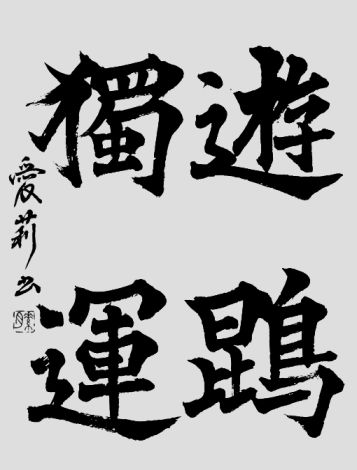 遊鵾
獨運
愛莉书